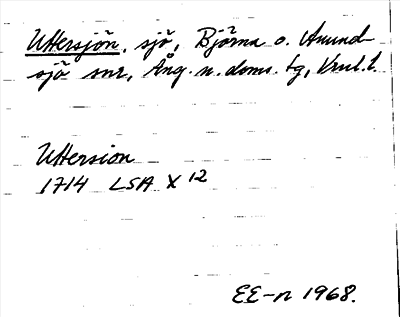 Uttersjön, sjö, Björna o. Anund-
sjö snr, Ång. n. doms. tg, Vnrl. l.
Uttersion
1714 LSA X 12
EE-n 1968.